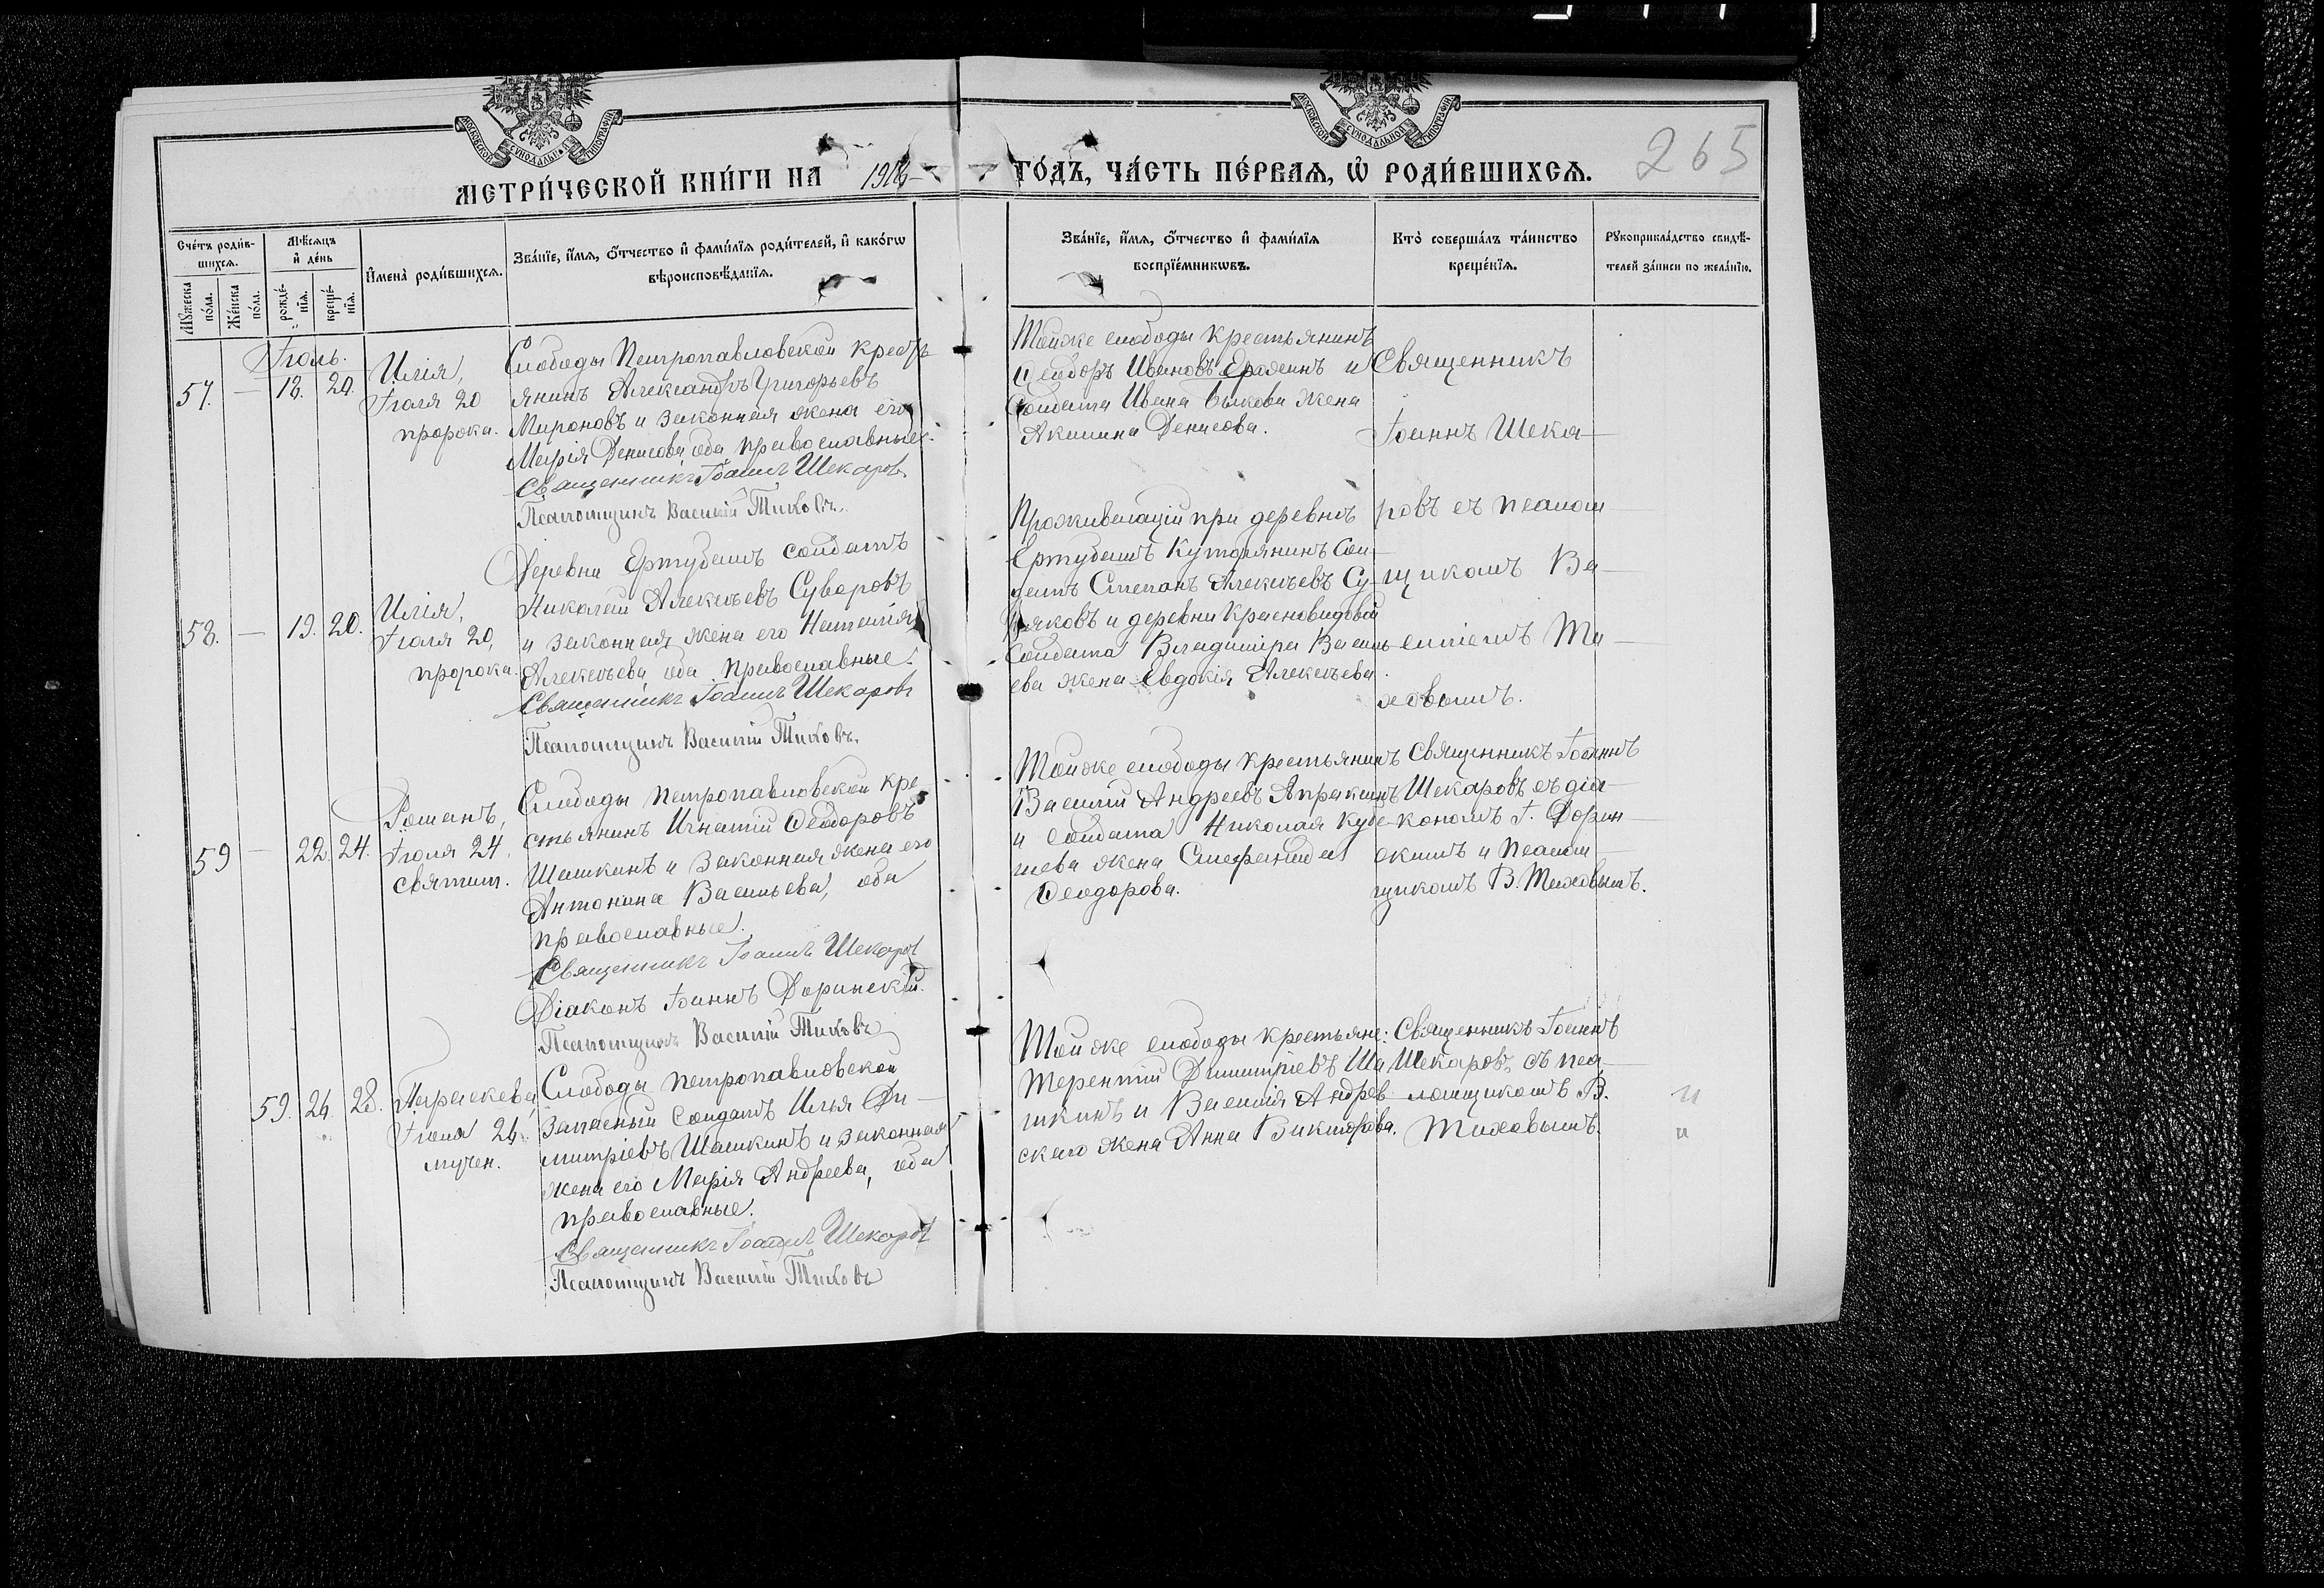 МОСКОВСКОЙ СѴНОДАЛЬНОЙ ТИПОГРАФІИ
МОСКОВСКОЙ СѴНОДАЛЬНОЙ ТИПОГРАФІИ
МЕТРИ́ЧЕСКОЙ КНИ́ГИ НА
ГО́ДЪ, ЧА́СТЬ ПЕ́РВАѦ, Ѡ҆ РОДИ́ВШИХСѦ.
265
Сче́тъ роди́в-
шихсѧ.
Мꙋ́жеска
по́ла.
Же́нска
по́ла.
Мѣ́сѧцъ
и҆ де́нь
рожде́-
нїѧ.
креще́-
нїѧ.
И҆мена̀ роди́вшихсѧ.
Зва́нїе, и҆́мѧ, ѻ҆́тчество и҆ фами́лїѧ роди́телей, и҆ како́гѡ
вѣроисповѣ́данїѧ.
Зва́нїе, и҆́мѧ, ѻ҆́тчество и҆ фами́лїѧ
воспрїе́мникѡвъ.
Кто̀ соверша́лъ та́инство
креще́нїѧ.
Рꙋкоприкла́дство свидѣ́-
телей за́писи по жела́нїю.
Іюль.
57. — 18. 20.
Илія,
Іюля 20
пророка.
Слободы Петропавловской кресть
янинъ Александръ Григорьевъ
Мироновъ и законная жена его
Марія Денисова, оба православные.
Священникъ Іоаннъ Шекаровъ
Псаломщикъ Василій Тиховъ.
Той же слободы крестьянинъ
Ѳеодоръ Ивановъ и
Солдата Ивана Быкова жена
Акилина Денисова.
Священникъ
Іоаннъ Шека-
ровъ съ псалом-
щикомъ Ва-
силіемъ Ти-
ховымъ.
58. — 19. 20.
Илія,
Іюля 20,
пророка.
Деревни Ертубешъ солдатъ
Николай Алексѣевъ Суворовъ
и законная жена его Наталія
Алексѣева, оба православные.
Священникъ Іоаннъ Шекаровъ
Псаломщикъ Василій Тиховъ.
Проживающій при деревнѣ
Ертубешъ Сол-
датъ Степанъ Алексѣевъ Су-
и деревни Красновидовой
Солдата Владиміра Василь-
ева жена Евдокія Алексѣева.
59 — 22. 24.
Романъ,
Іюля 24,
святит.
Слободы Петропавловской кре-
стьянинъ Игнатій Ѳеодоровъ
Шашкинъ и законная жена его
Антонина Васильева, оба
православные.
Священникъ Іоаннъ Шекаровъ
Діаконъ Іоаннъ Доринскій.
Псаломщикъ Василій Тиховъ
Той же слободы крестьянинъ
Василій Андреевъ Апракинъ
и солдата Николая Кубе-
жена Стефанида
Ѳеодорова.
Священникъ Іоаннъ
Шекаровъ съ діа-
кономъ І. Дорин-
скимъ и псалом-
щикомъ В. Тиховымъ.
59. 24. 28.
Параскева,
Іюля 24
мучен.
Слободы Петропавловской
запасный солдатъ Илья Ди-
митріевъ Шашкинъ и законная
жена его Марія Андреева, оба
православные.
Священникъ Іоаннъ Шекаровъ
Псаломщикъ Василій Тиховъ
Той же слободы крестьяне:
Терентій Димитріевъ Ша
шкинъ и Василія Андрев
скаго жена Анна Викторова.
Священникъ Іоаннъ
Шекаровъ, съ пса-
ломщикомъ В.
Тиховымъ.